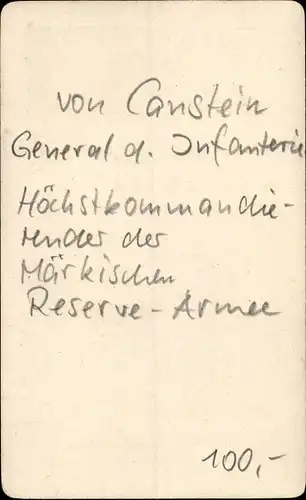 von Canstein
General d. Infanterie
Höchstkommandie-
render der
Märkischen
Reserve-Armee
100,-